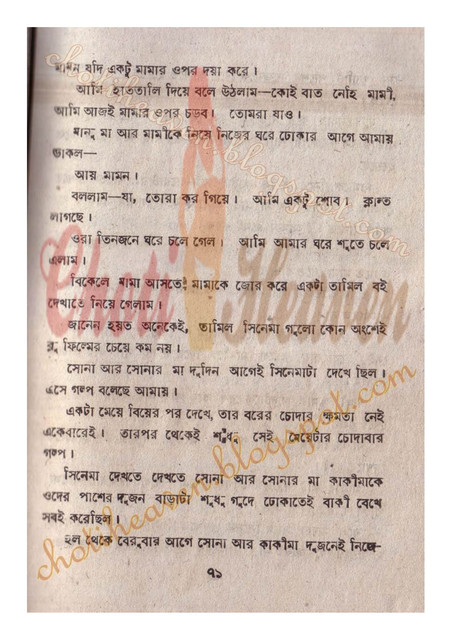 মামন যদি একটু মামার ওপর দয়া করে।
আমি হাততালি দিয়ে বলে উঠলাম—কোই বাত নেহি মামী,
আমি আজই মামার ওপর চড়ব। তোমরা যাও।
মা আর মামীকে নিয়ে নিজের ঘরে ঢোকার আগে আমায়
ডাকল—
আয় মামন।
বললাম—যা, তোরা কর গিয়ে। আমি একটু শোব। ক্লান্ত
লাগছে।
ওরা তিনজনে ঘরে চলে গেল। আমি আমার ঘরে শুতে চলে
এলাম।
বিকেলে মামা আসতেই মামাকে জোর করে একটা তামিল বই
দেখাতে নিয়ে গেলাম।
জানেন হয়ত অনেকেই, তামিল সিনেমা গুলো কোন অংশেই
ব্লু ফিল্মের চেয়ে কম নয়।
সোনা আর সোনার মা দুদিন আগেই সিনেমাটা দেখে ছিল।
এসে গল্প বলেছে আমায়।
একটা মেয়ে বিয়ের পর দেখে, তার বরের চোদার ক্ষমতা নেই
একেবারেই। তারপর থেকেই শুধু সেই মেয়েটার চোদাবার
গল্প।
সিনেমা দেখতে দেখতে সোনা আর সোনার মা কাকীমাকে
ওদের পাশের দুজন বাড়াটা শুধু গুদে ঢোকাতেই বাকী রেখে
সবই করেছিল।
হল থেকে বেরুবার আগে সোনা আর কাকীমা দুজনেই নিজে-
৭১
chotiheaven.blogspot.com
Choti Heaven
chotiheaven.blogspot.com